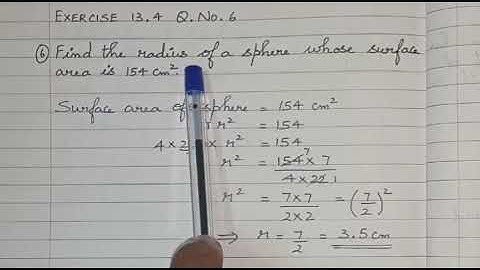 EXERCISE 13.4 Q.No.6
⑥ Find the radius of a sphere whose surface
area is 154 cm².
Surface area of sphere = 154 cm²
r² = 154
4 × 2 × r² = 154
r² = 154⁷ × 7 / 4 × 22 1
r² = 7×7 / 2×2 = (7/2)²
⇒ r = 7/2 = 3.5cm